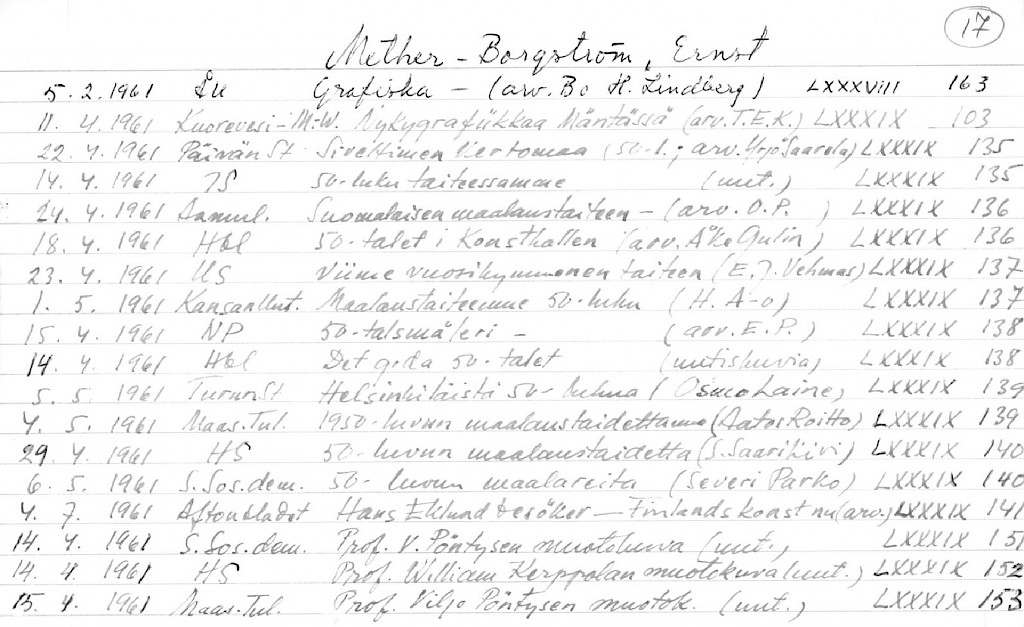 17
Mether-Borgström, Ernst
5. 2. 1961 Åu Grafiska - (arv. Bo H. Lindberg) LXXXVIII 163
11. 4. 1961 Kuorevesi-M.-W. Nykygrafiikkaa Mäntässä (arv. T.E.K.) LXXXIX 103
22. 4. 1961 Päivän St Siveltimen kertomaa (50-l.; arv. Yrjö Saarela) LXXXIX 135
14. 4. 1961 50-luku taiteessamme (uut.) LXXXIX 135
24. 4. 1961 Aamul. Suomalaisen maalaustaiteen - (arv. O.P. ) LXXXIX 136
18. 4. 1961 Hbl 50-talet i Konsthallen (arv. Åke Gulin) LXXXIX 136
23. 4. 1961 US Viime vuosikymmenen taiteen (E.J. Vehmas) LXXXIX 137
1. 5. 1961 Kansan Uut. Maalaustaiteemme 50-luku (H. A-o) LXXXIX 137
15. 4. 1961 NP 50-talsmåleri - (arv. E.P.) LXXXIX 138
14. 4. 1961 Hbl Det goda 50-talet (uutiskuvia) LXXXIX 138
5. 5. 1961 Turun St Helsinkiläistä 50-lukua (Osmo Laine) LXXXIX 139
4. 5. 1961 Maas.Tul. 1950-luvun maalaustaidettamme (Aatos Roitto) LXXXIX 139
29. 4. 1961 HS 50-luvun maalaustaidetta (S. Saarikivi) LXXXIX 140
6. 5. 1961 S. Sos.dem. 50-luvun maalareita (Severi Parko) LXXXIX 140
4. 7. 1961 Aftonbladet Hans Eklund besöker - Finlands konst nu (arv.) LXXXIX 141
14. 4. 1961 S. Sos.dem. Prof. V. Pöntysen muotokuva (uut.) LXXXIX 151
14. 4. 1961 HS Prof. William Kerppolan muotokuva (uut.) LXXXIX 152
15. 4. 1961 Maas.Tul. Prof. Viljo Pöntysen muotok. (uut.) LXXXIX 153